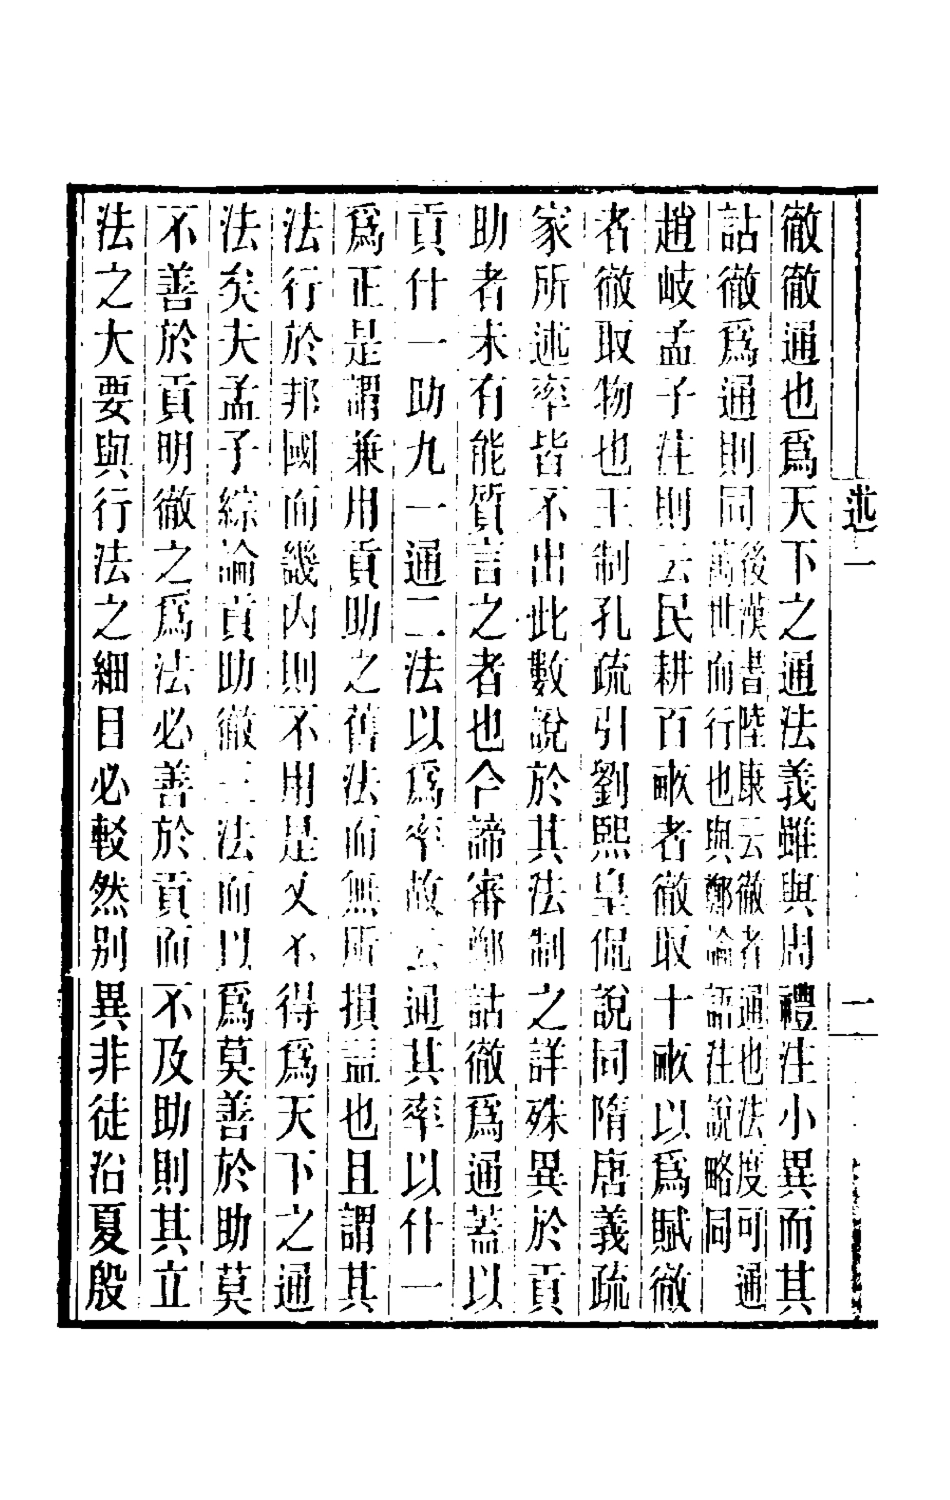 述一
一
徹徹通也爲天下之通法義雖與周禮注小異而其
詁徹爲通則同後漢書陸康云徹者通也法度可通萬世而行也與鄭論語注說略同
趙岐孟子注則云民耕百畝者徹取十畝以爲賦徹
者徹取物也王制孔疏引劉熙皇侃說同隋唐義疏
家所述率皆不出此數說於其法制之詳殊異於貢
助者未有能質言之者也今諦審鄭詁徹爲通蓋以
貢什一助九一通二法以爲率故云通其率以什一
爲正是謂兼用貢助之舊法而無所損益也且謂其
法行於邦國而畿內則不用是又不得爲天下之通
法矣夫孟子綜論貢助徹三法而以爲莫善於助莫
不善於貢明徹之爲法必善於貢而不及助則其立
法之大要與行法之細目必較然別異非徒沿夏殷